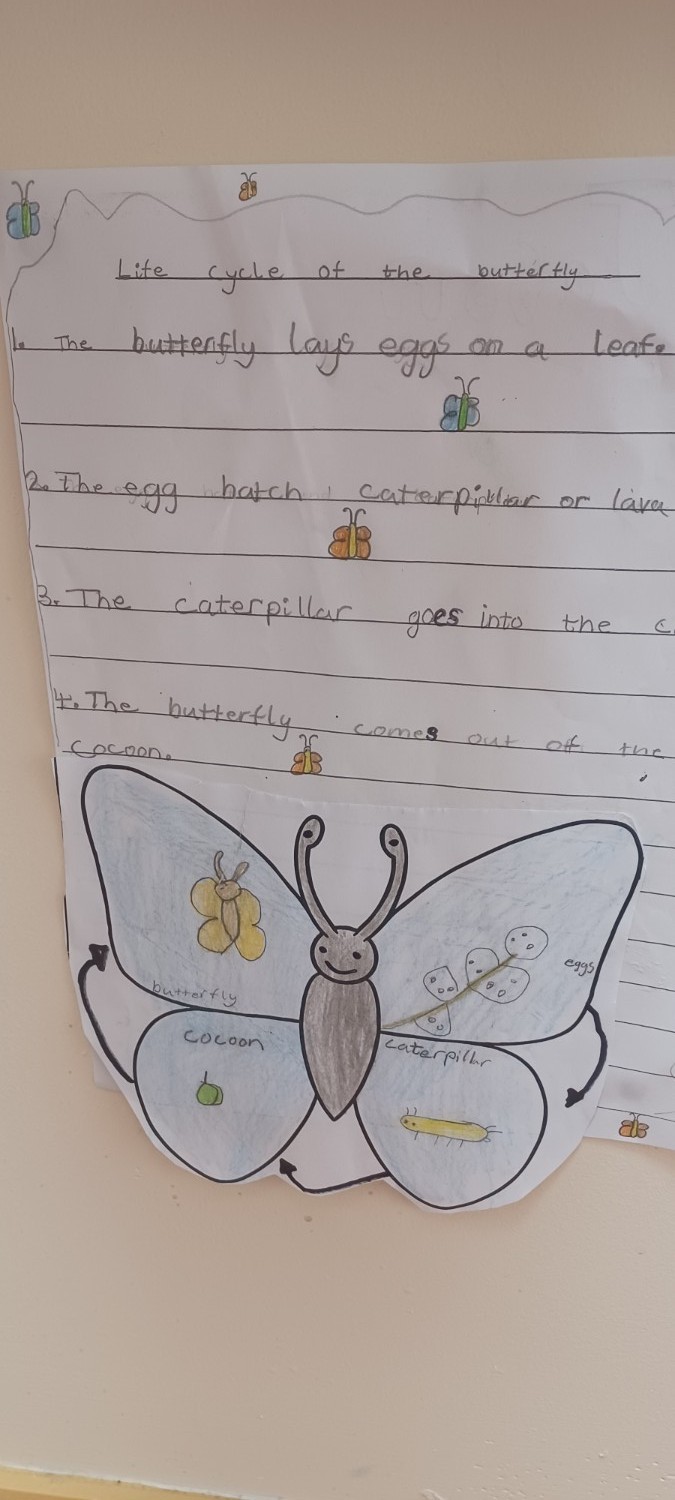 Life cycle of the butterfly
1. The butterfly lays eggs on a leaf.
2. The egg hatch caterpillar or lava
3. The caterpillar goes into the c
4. The butterfly comes out of the
cocoon.
butterfly
eggs
cocoon
caterpillar